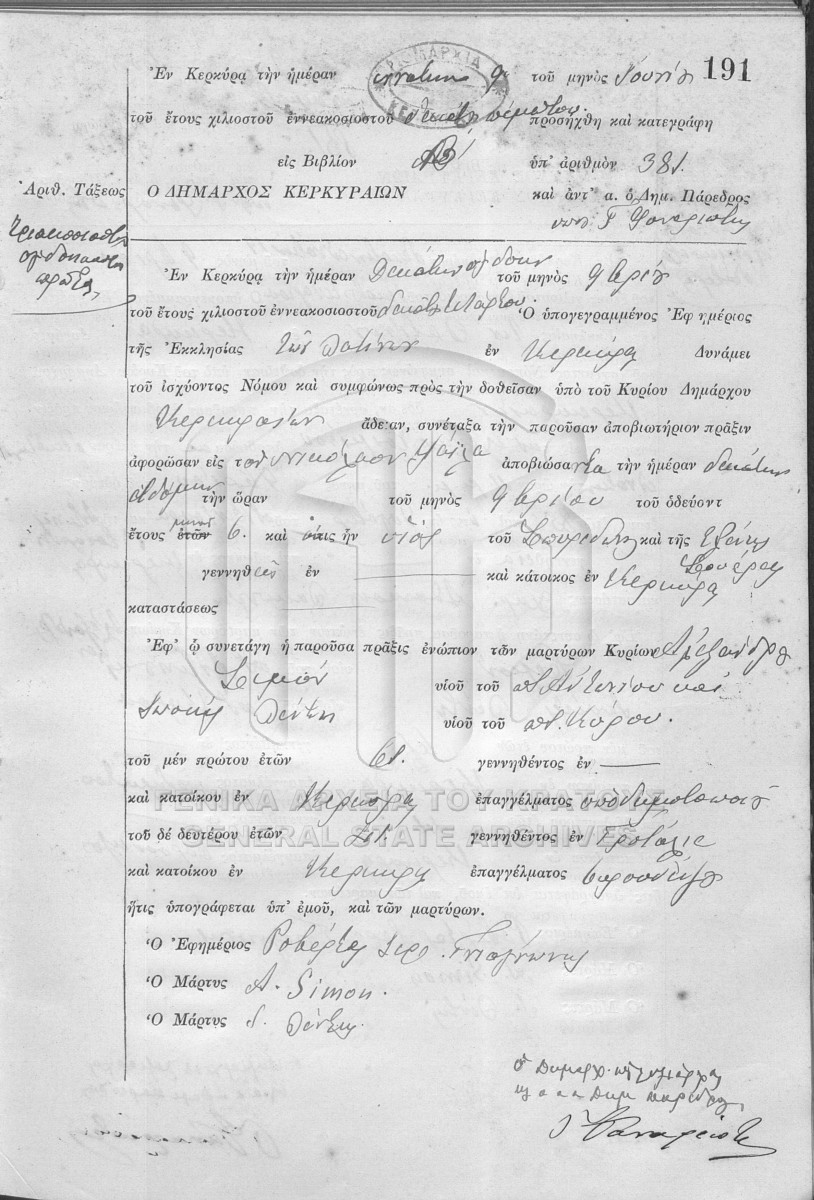 191
Ἐν Κερκύρᾳ τὴν ἡμέραν ἐννάτην 9ην τοῦ μηνὸς Ἰουνίου
τοῦ ἔτους χιλιοστοῦ ἐννεακοσιοστοῦ δεκάτου πέμπτου προσήχθη καὶ κατεγράφη
εἰς Βιβλίον ὑπ' ἀριθμὸν 381.
Ἀριθ. Τάξεως
Ο ΔΗΜΑΡΧΟΣ ΚΕΡΚΥΡΑΙΩΝ καὶ ἀντ' α. ὁ Δημ. Πάρεδρος
Τριακοσιοστὴ
ὀγδοηκοστὴ
πρώτη
Ἐν Κερκύρᾳ τὴν ἡμέραν Δεκάτην ὀγδόην τοῦ μηνὸς 9βρίου
τοῦ ἔτους χιλιοστοῦ ἐννεακοσιοστοῦ δεκάτου τετάρτου Ὁ ὑπογεγραμμένος Ἐφημέριος
τῆς Ἐκκλησίας τῶν Λατίνων ἐν Κερκύρᾳ Δυνάμει
τοῦ ἰσχύοντος Νόμου καὶ συμφώνως πρὸς τὴν δοθεῖσαν ὑπὸ τοῦ Κυρίου Δημάρχου
Κερκυραίων ἄδειαν, συνέταξα τὴν παροῦσαν ἀποβιωτήριον πρᾶξιν
ἀφορῶσαν εἰς τὸν Νικόλαον Ψάϊλα ἀποβιώσαντα τὴν ἡμέραν δεκάτην
ἑβδόμην τὴν ὥραν τοῦ μηνὸς 9βρίου τοῦ ὁδεύοντ
ἔτους ἐτῶν μηνῶν 6. καὶ ὅστις ἦν υἱὸς τοῦ Σπυρίδωνος καὶ τῆς Ἑλένης
γεννηθεὶς ἐν καὶ κάτοικος ἐν Κερκύρᾳ
καταστάσεως
Ἐφ' ᾧ συνετάγη ἡ παροῦσα πρᾶξις ἐνώπιον τῶν μαρτύρων Κυρίων Ἀλεξάνδρου
Σιμὸν υἱοῦ τοῦ ποτ. Ἀντωνίου καὶ
υἱοῦ τοῦ
τοῦ μέν πρώτου ἐτῶν 61. γεννηθέντος ἐν
καὶ κατοίκου ἐν Κερκύρᾳ ἐπαγγέλματος ὑποδηματοποιοῦ
τοῦ δὲ δευτέρου ἐτῶν γεννηθέντος ἐν
καὶ κατοίκου ἐν Κερκύρᾳ ἐπαγγέλματος
ἥτις ὑπογράφεται ὑπ' ἐμοῦ, καὶ τῶν μαρτύρων.
Ὁ Ἐφημέριος Ροβέρτος
Ὁ Μάρτυς A. Simon.
Ὁ Μάρτυς
ΓΕΝΙΚΑ ΑΡΧΕΙΑ ΤΟΥ ΚΡΑΤΟΥΣ
GENERAL STATE ARCHIVES